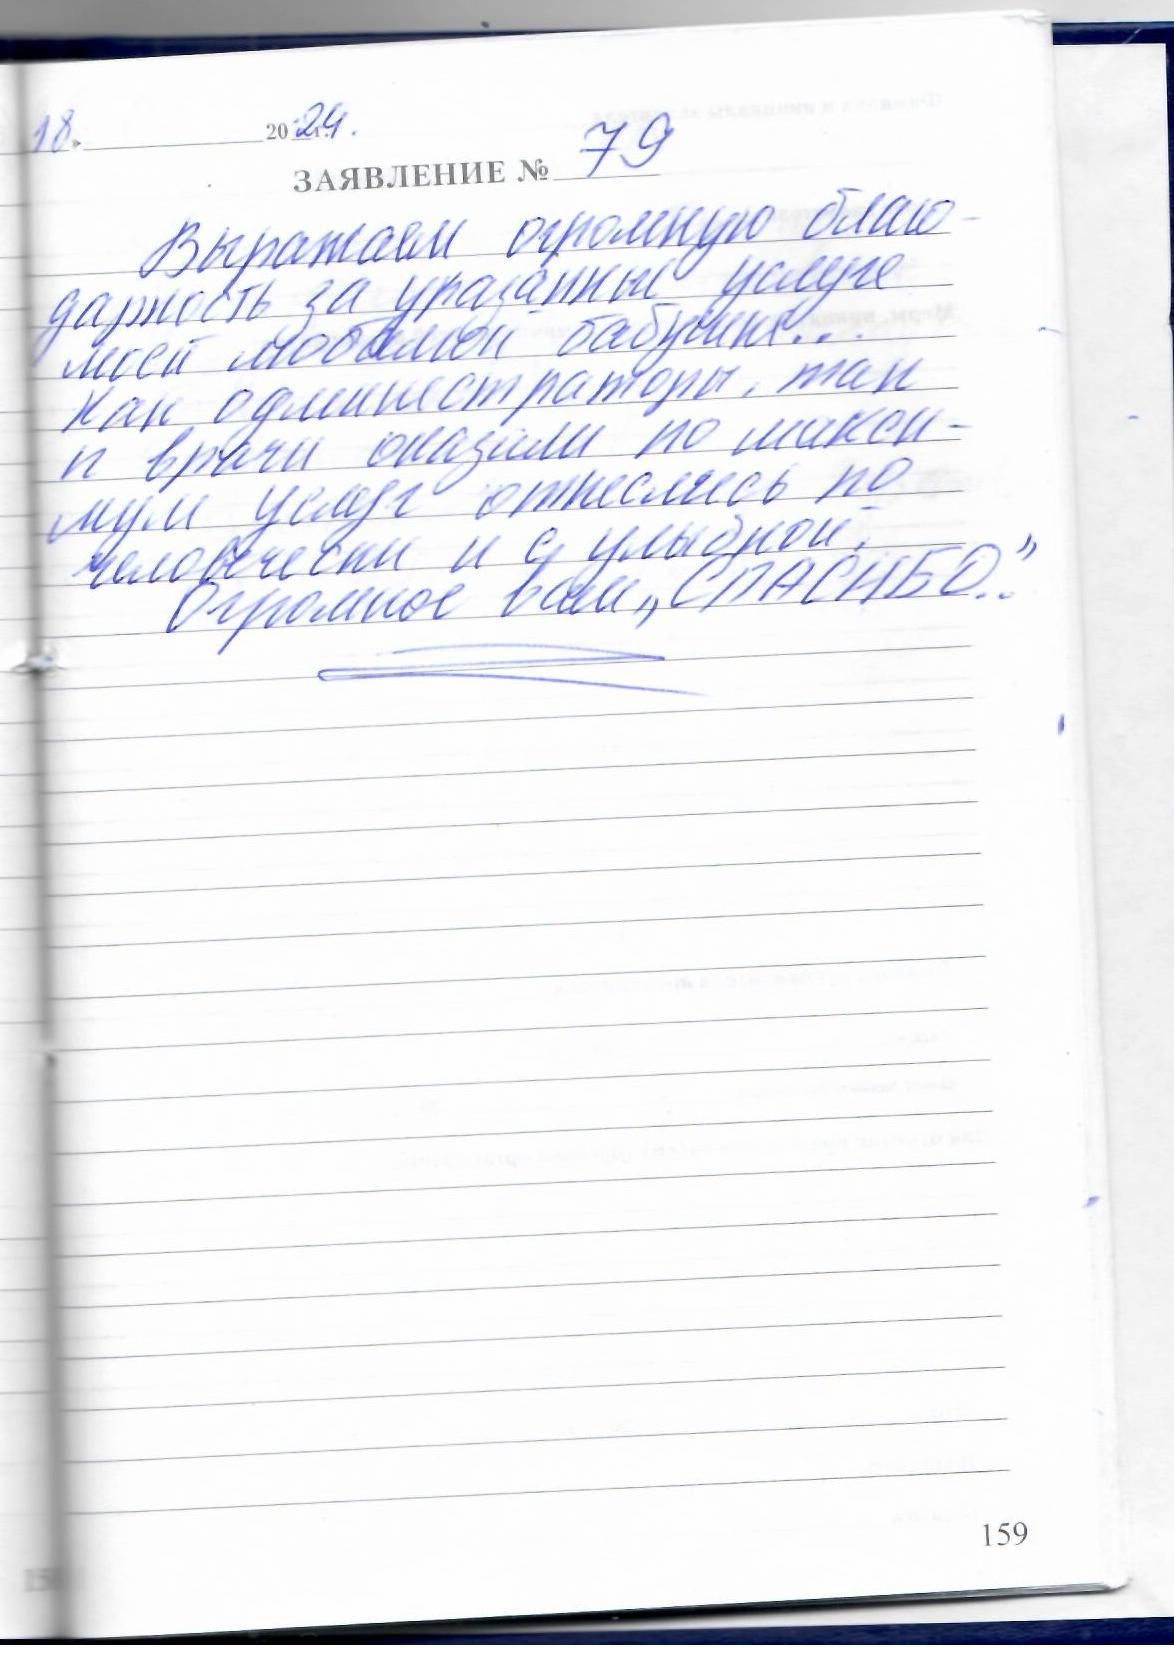 18 » 2024 г.
ЗАЯВЛЕНИЕ № 79
Выражаем огромную благо-
дарность за указанные услуге
моей любимой бабушке...
Как администраторы, так
и врачи оказали по макси-
мум услуг отнеслись по
человечески и с улыбкой.
Огромное вам „СПАСИБО..”
159